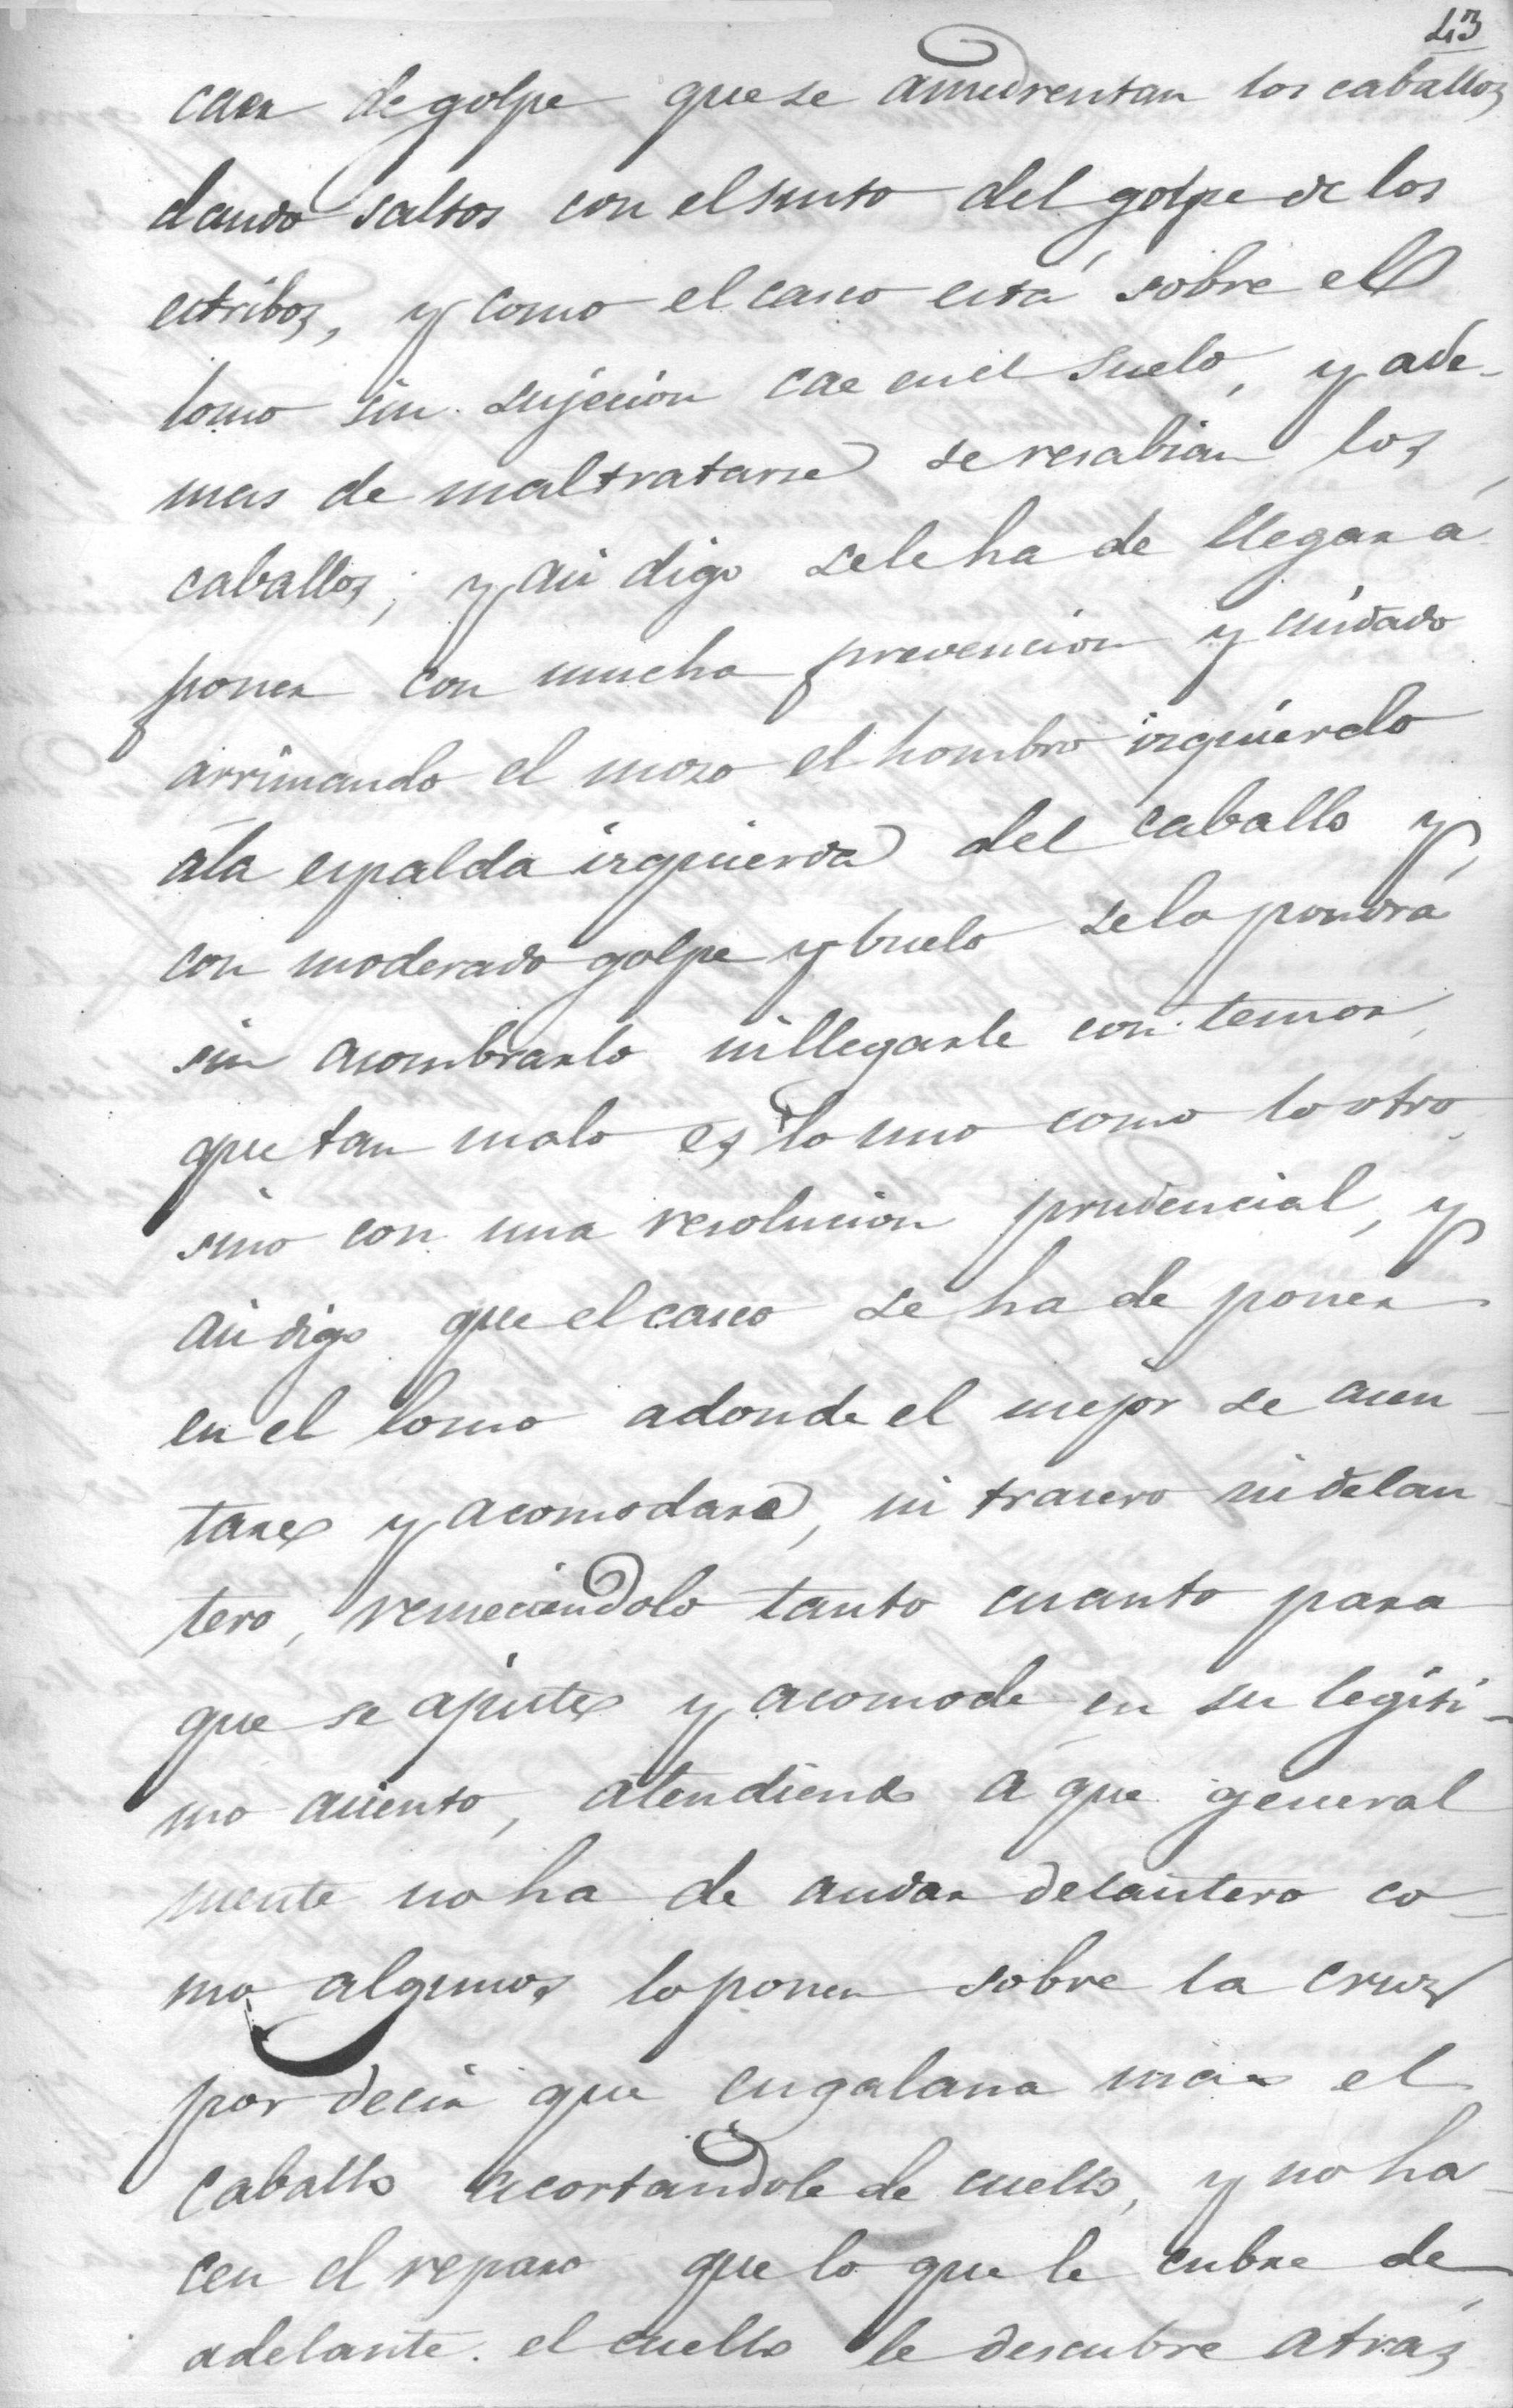 43
caen de golpe que se amedrentan los caballos
dando saltos con el susto del golpe de los
estribos, y como el casco está sobre el
lomo sin sujecion cae en el suelo, y ade-
mas de maltratarse se resabian los
caballos; y asi digo sele ha de llegar a
poner con mucha prevencion y cuidado
arrimando el mozo el hombro izquierdo
ála espalda izquierda del caballo y
con moderado golpe y buelo selo pondrá
sin asombrarlo nillegarle con temor,
que tan malo es lo uno como lo otro,
sino con una resolucion prudencial, y
asi digo que el casco se ha de poner
en el lomo adonde el mejor se asen-
tare y acomodare, ni trasero nidelan-
tero, remeciéndolo tanto cuanto para
que se ajuste y acomode en su legiti-
mo asiento, atendiendo á que general
mente no ha de andar delantero co-
mo algunos lo ponen sobre la cruz
por decir que engalana mas el
caballo acortandole de cuello, y no ha-
cen el reparo que lo que le cubre de
adelante el cuello le descubre atras